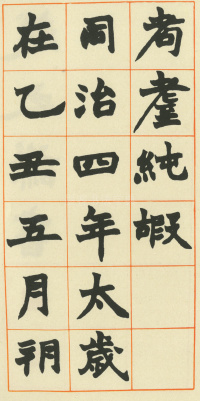 耇耋純嘏
同治四年太歲
在乙丑五月朔